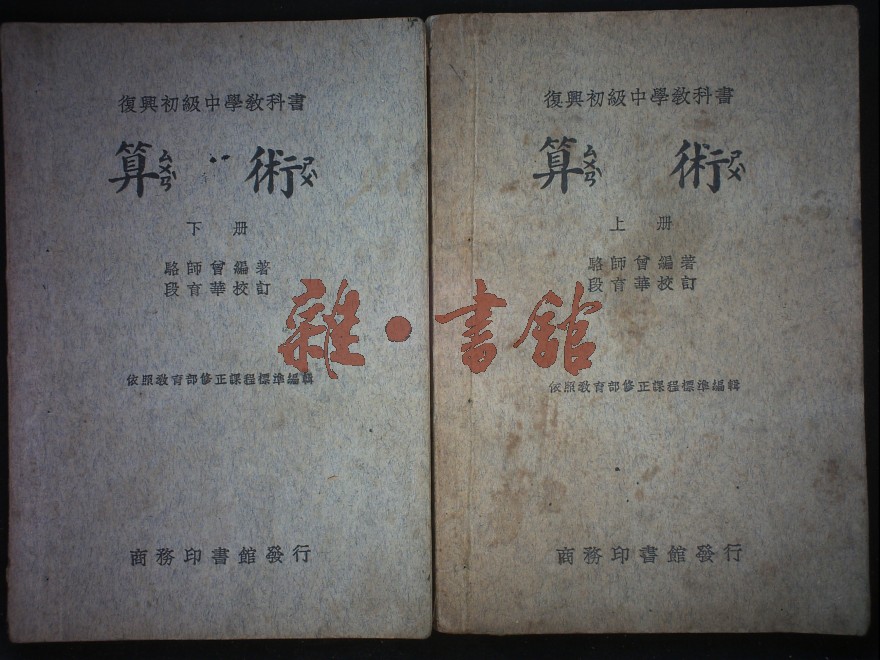 復興初級中學教科書
算ㄙㄨㄢ術ㄕㄨ
下冊
駱師曾編著
段育華校訂
依照教育部修正課程標準編輯
商務印書館發行
復興初級中學教科書
算ㄙㄨㄢ術ㄕㄨ
上冊
駱師曾編著
段育華校訂
依照教育部修正課程標準編輯
商務印書館發行
雜·書館